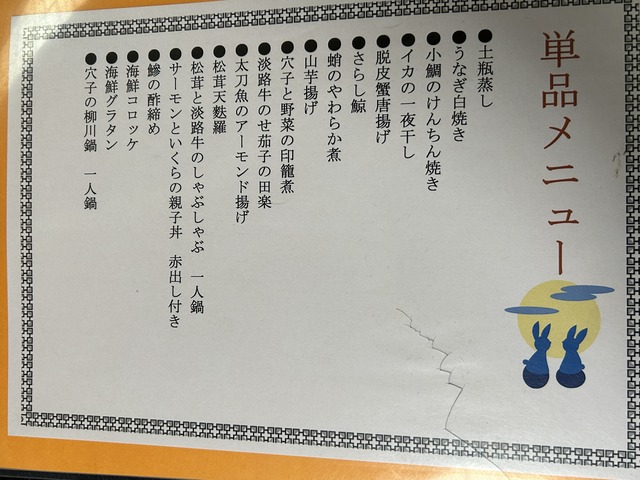 単品メニュー
●土瓶蒸し
●うなぎ白焼き
●小鯛のけんちん焼き
●イカの一夜干し
●脱皮蟹唐揚げ
●さらし鯨
●蛸のやわらか煮
●山芋揚げ
●穴子と野菜の印籠煮
●淡路牛のせ茄子の田楽
●太刀魚のアーモンド揚げ
●松茸天麩羅
●松茸と淡路牛のしゃぶしゃぶ 一人鍋
●サーモンといくらの親子丼 赤出し付き
●鰺の酢締め
●海鮮コロッケ
●海鮮グラタン
●穴子の柳川鍋 一人鍋